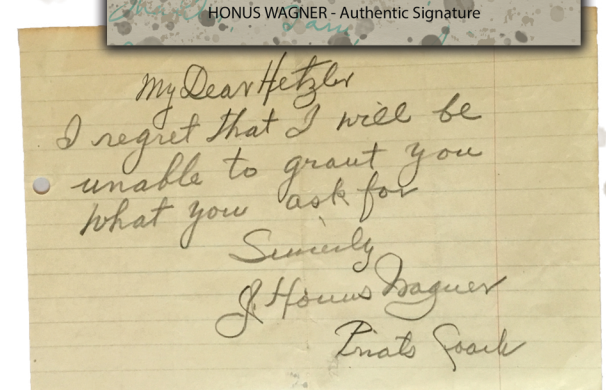 HONUS WAGNER - Authentic Signature
My Dear Hetzler
I regret that I will be
unable to grant you
what you ask for
Sincerly
J. Honus Wagner
Pirats Coach